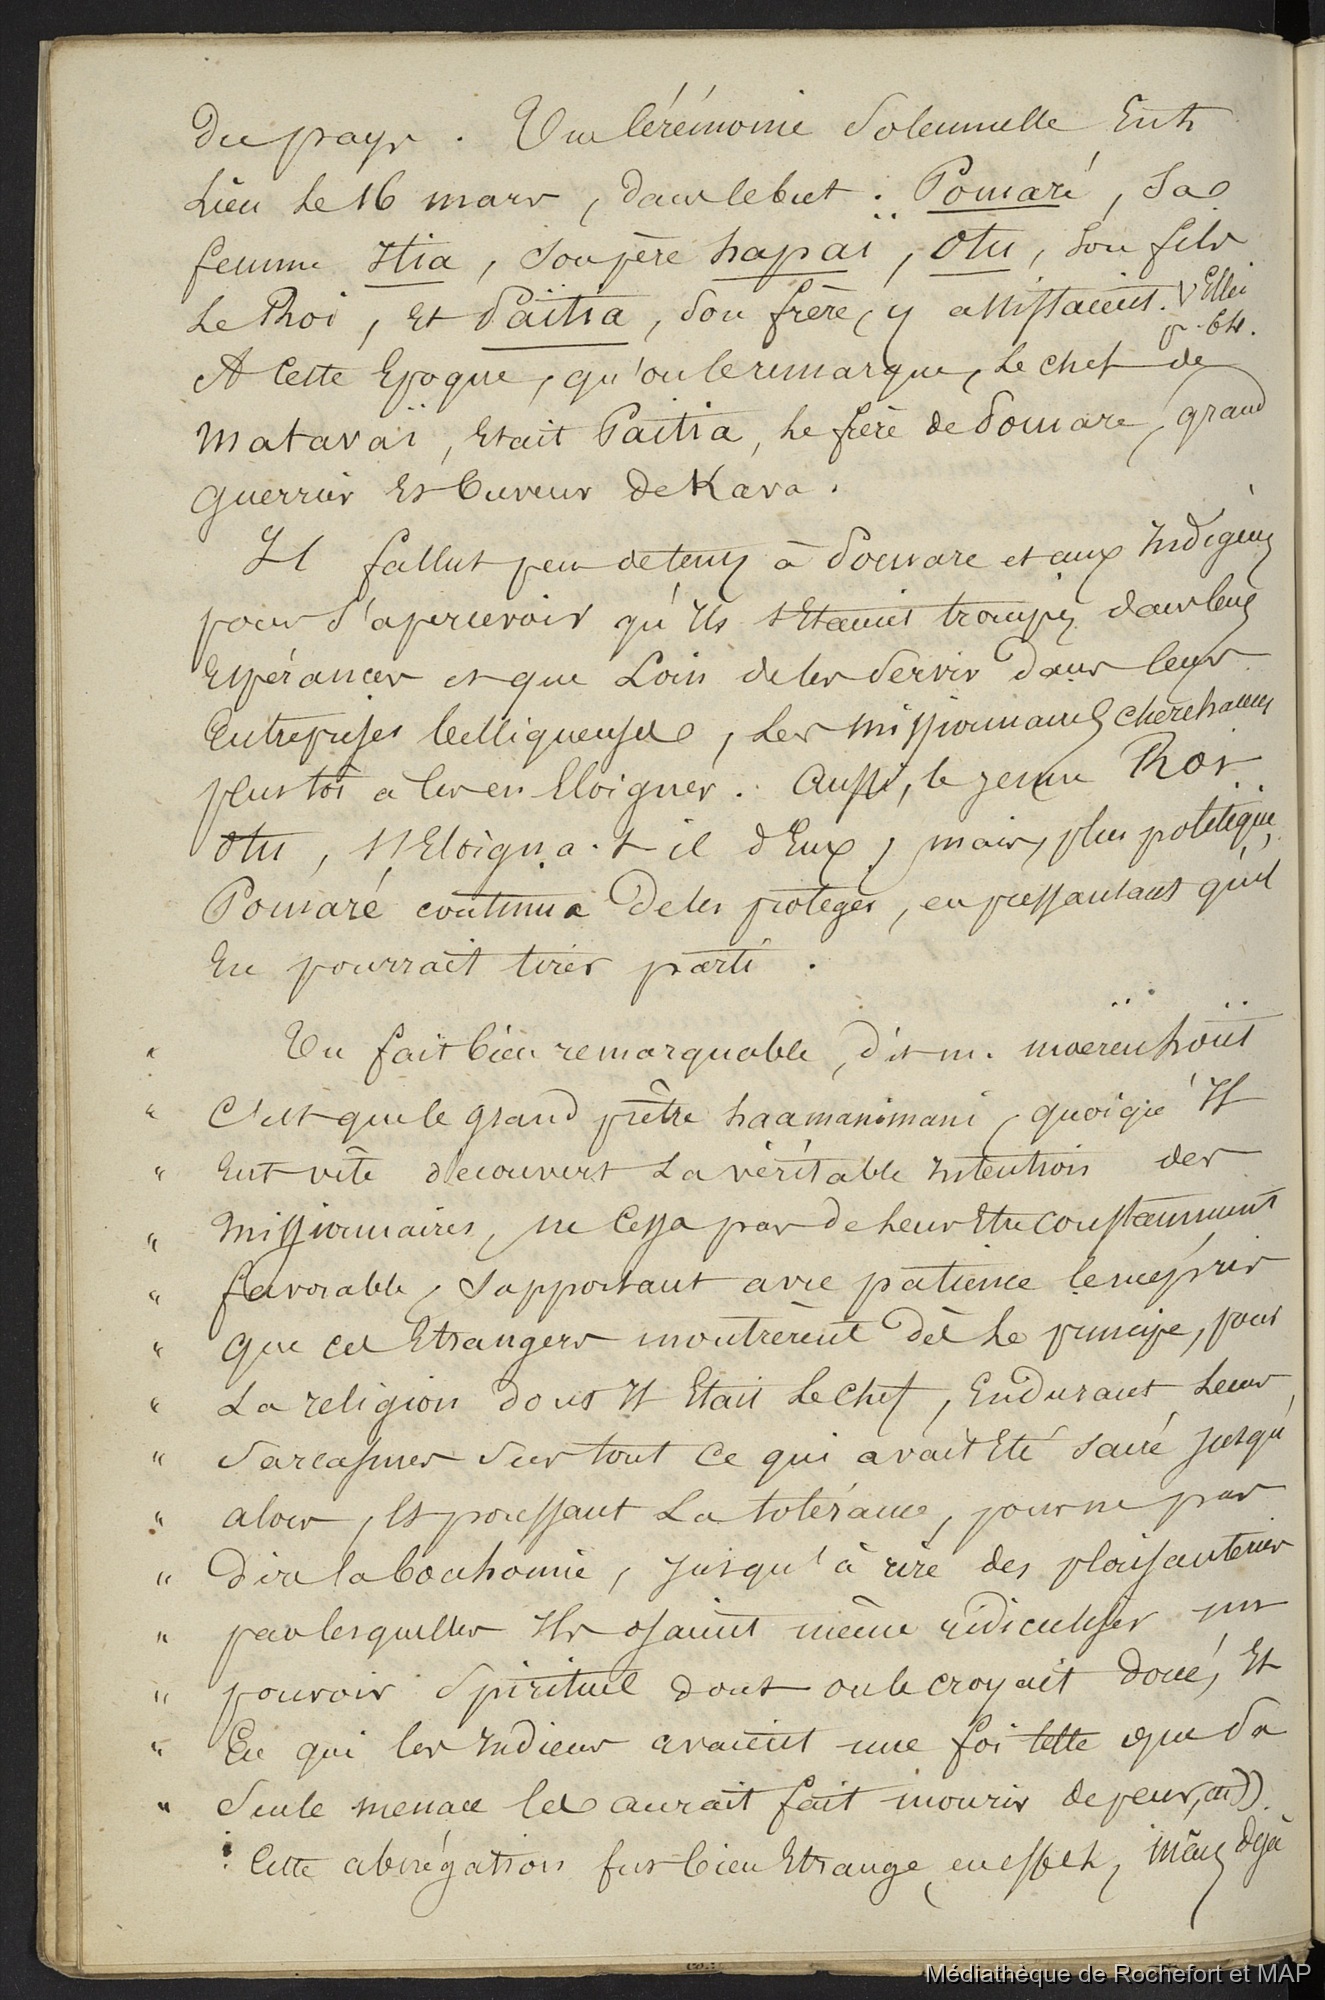 du pays. Une Cérémonie Solennelle Eut
Lieu le 16 mars, dans le but : Pomaré, Sa
femme Itia, Son père hapaï, Otu, Son fils
Le Roi, Et Païtia, Son frère, y assistaient. V Ellei
p. 64.
A Cette Epoque, qu'on le remarque, Le chef de
Matavaï, Etait Païtia, le frère de Pomare, grand
guerrier Et buveur de Kava.
Il fallut peu de tems à Pomare et aux Indigènes
pour S'apercevoir qu'Ils s'Etaient trompés dans leurs
Espérances et que Loin de les Servir dans leurs
Entreprises belliqueuses, Les Missionnaires cherchaient
plus tôt à les en Eloigner. Aussi, le jeune Roi
Otu, S'Eloigna-t-il d'Eux ; mais, plus politique,
Pomaré continua de les protéger, en pressentant qu'il
En pourrait tirer parti.
" Un fait bien remarquable, dit M. Moerenhoüt
" C'est que le grand prêtre haamanimani, quoiqu'Il
" Eut vite découvert La véritable Intention des
" Missionnaires, ne Cessa pas de leur Etre constamment
" favorable, Supportant avec patience le mépris
" que ces Etrangers montrèrent dès le principe, pour
" La religion dont Il Etait Le chef, Endurant Leurs
" Sarcasmes Sur tout ce qui avait Eté Sacré jusqu'
" alors, Et poussant La tolérance, pour ne pas
" dire la bonhomie, jusqu'à rire des plaisanteries
" par lesquelles Ils osaient même ridiculiser un
" pouvoir Spirituel dont on le croyait doué, Et
" En qui les Indiens avaient une foi telle que Sa
" Seule menace les aurait fait mourir de peur,
Cette abnégation fut bien Etrange, en effet, mais déjà
Médiathèque de Rochefort et MAP